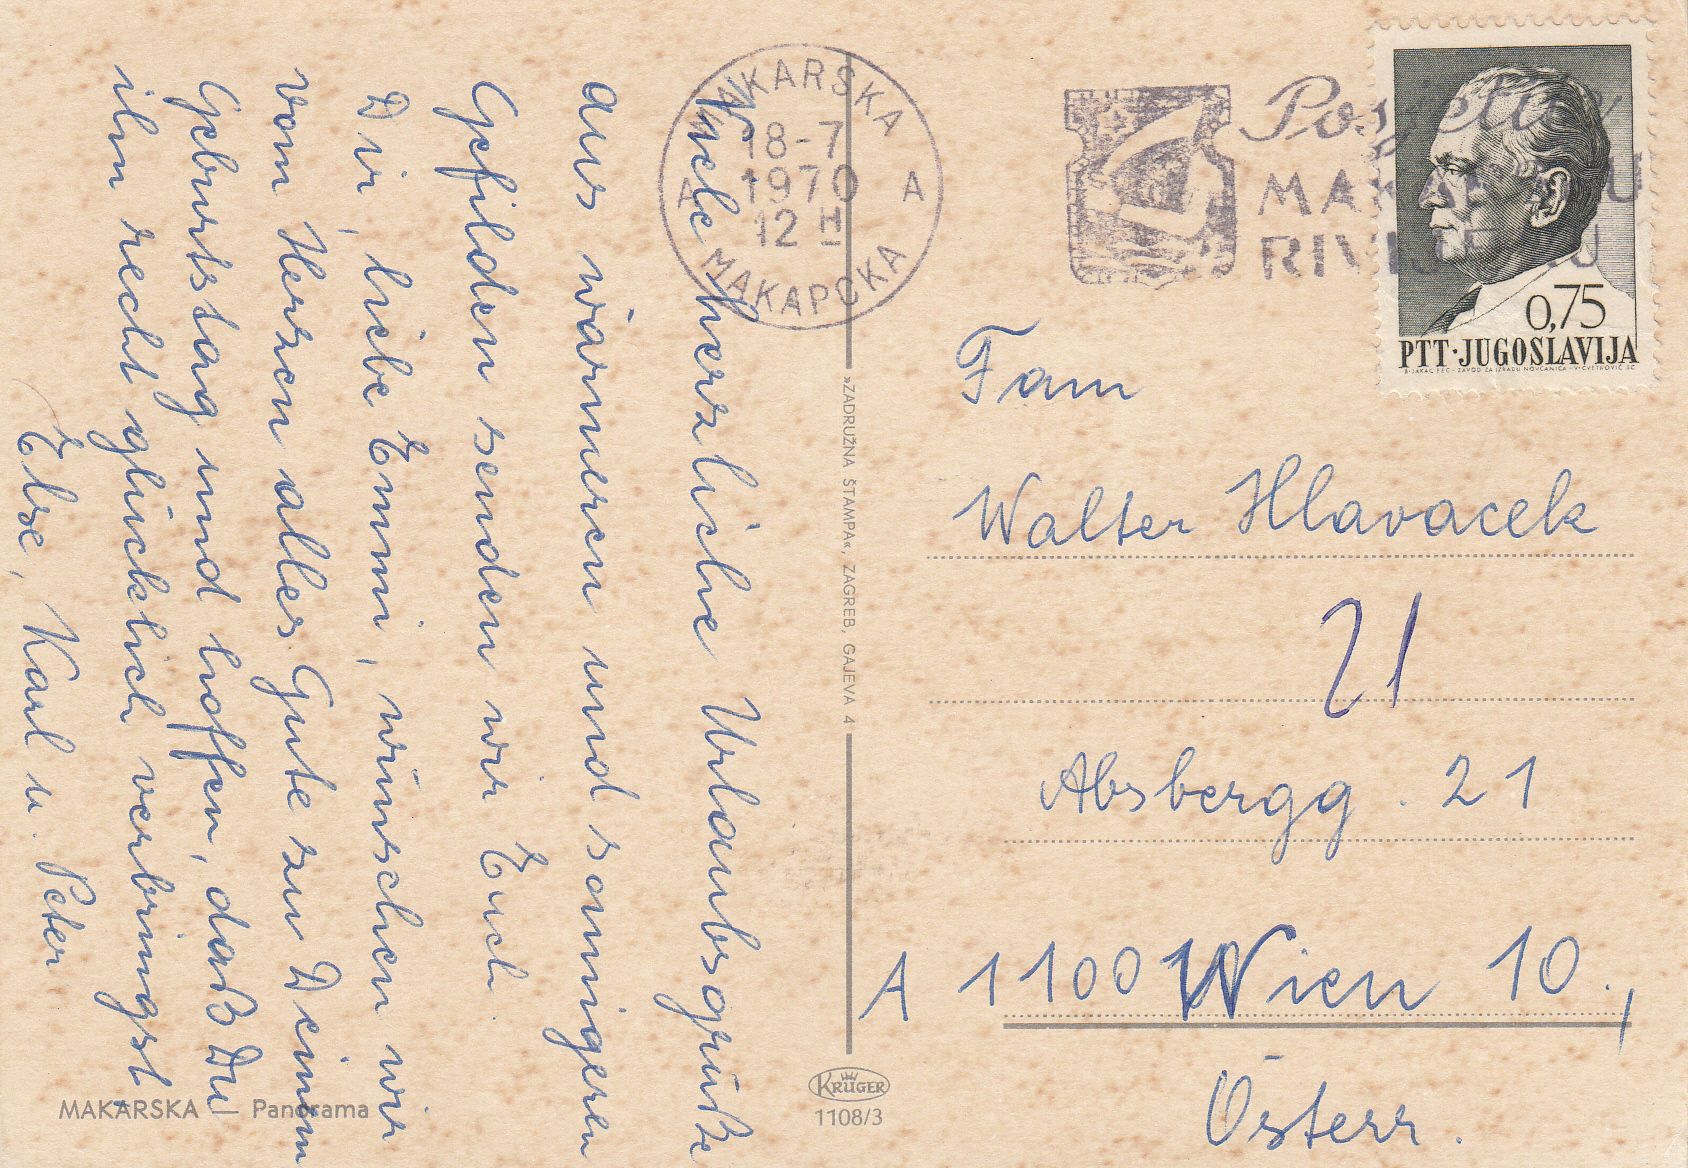 Viele herzliche Urlaubsgrüße
aus wärmeren und sonnigeren
Gefilden senden wir Euch.
Dir, liebe Emmi, wünschen wir
vom Herzen alles Gute zu Deinem
Geburtstag und hoffen, daß Du
ihn recht glücklich verbringst.
Else, Karl u. Peter
MAKARSKA — Panorama
MAKARSKA
18-7
1970
12 H
A A
МАКАРСКА
»ZADRUŽNA ŠTAMPA«, ZAGREB, GAJEVA 4
KRÜGER
1108/3
Posjetite
RIVIJERU
0,75
PTT·JUGOSLAVIJA
Fam
Walter Hlavacek
21
Absbergg. 21
A 1100 Wien 10.,
Österr.